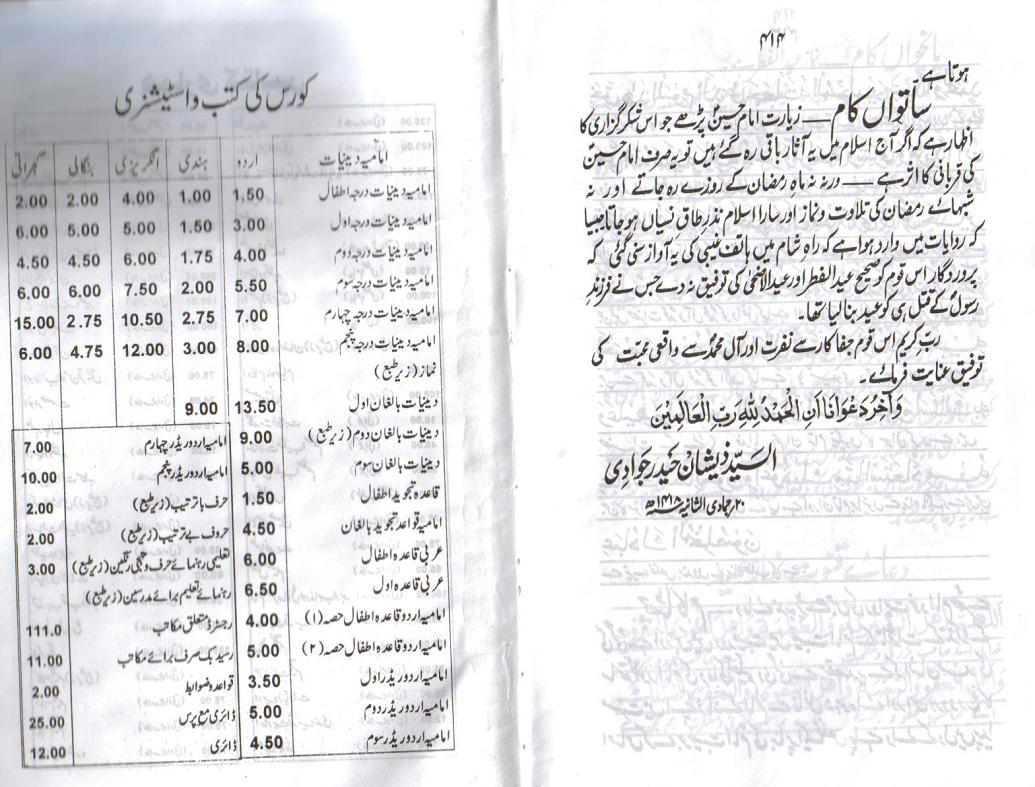 ۴۱۴
ہوتا ہے۔
ساتواں کام ـــ زیارت امام حسینؑ پڑھے جو اس شکر گزاری کا
اظہار ہے کہ اگر آج اسلام میں یہ آثار باقی رہ گئے ہیں تو یہ صرف امام حسینؑ
کی قربانی کا اثر ہے ـــ ورنہ نہ ماہِ رمضان کے روزے رہ جاتے اور نہ
شبہائے رمضان کی تلاوت و نماز اور سارا اسلام نذرِ طاق نسیاں ہو جاتا جیسا
کہ روایات میں وارد ہوا ہے کہ راہِ شام میں ہاتف غیبی کی یہ آواز سنی گئی کہ
پروردگار اس قوم کو صحیح عید الفطر اور عید الاضحیٰ کی توفیق نہ دے جس نے فرزندِ
رسولؐ کے قتل ہی کو عید بنا لیا تھا۔
ربِّ کریم اس قوم جفا کار سے نفرت اور آل محمدؐ سے واقعی محبت کی
توفیق عنایت فرمائے۔
وَآخِرُ دَعْوَانَا اَنِ الْحَمْدُ لِلّٰهِ رَبِّ الْعَالَمِيْنَ
السیّد ذیشان حیدر جوادی
۲۰؍ جمادی الثانیہ ۱۴۱۸ھ
کورس کی کتب و اسٹیشنری
امامیہ دینیات اردو ہندی انگریزی بنگالی گجراتی
امامیہ دینیات درجہ اطفال 1.50 1.00 4.00 2.00 2.00
امامیہ دینیات درجہ اول 3.00 1.50 5.00 5.00 6.00
امامیہ دینیات درجہ دوم 4.00 1.75 6.00 4.50 4.50
امامیہ دینیات درجہ سوم 5.50 2.00 7.50 6.00 6.00
امامیہ دینیات درجہ چہارم 7.00 2.75 10.50 2.75 15.00
امامیہ دینیات درجہ پنجم 8.00 3.00 12.00 4.75 6.00
نماز (زیر طبع)
دینیات بالغان اول 13.50 9.00
دینیات بالغان دوم (زیر طبع) 9.00
دینیات بالغان سوم 5.00
قاعدہ تجوید اطفال 1.50
امامیہ قواعد تجوید بالغان 4.50
عربی قاعدہ اطفال 6.00
عربی قاعدہ اول 6.50
امامیہ اردو قاعدہ اطفال حصہ (۱) 4.00
امامیہ اردو قاعدہ اطفال حصہ (۲) 5.00
امامیہ اردو ریڈر اول 3.50
امامیہ اردو ریڈر دوم 5.00
امامیہ اردو ریڈر سوم 4.50
امامیہ اردو ریڈر چہارم 7.00
امامیہ اردو ریڈر پنجم 10.00
حرف با ترتیب (زیر طبع) 2.00
حروف بے ترتیب (زیر طبع) 2.00
تعلیمی رہنمائے حرف و تہجی رنگین (زیر طبع) 3.00
رہنمائے تعلیم برائے مدرسین (زیر طبع)
رجسٹر متعلق مکاتب 111.0
رسید بک صرف برائے مکاتب 11.00
قواعد و ضوابط 2.00
ڈائری مع پرس 25.00
ڈائری 12.00